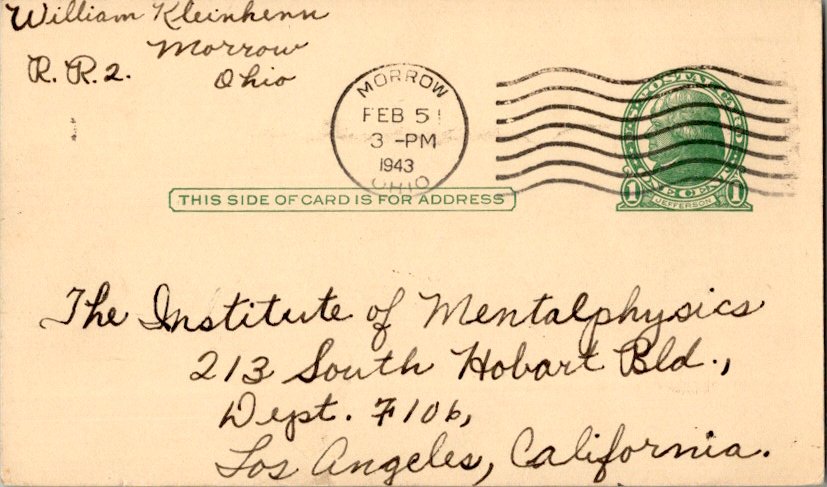 William Kleinhenn
Morrow
R. R. 2. Ohio
MORROW
FEB 5
3 -PM
1943
OHIO
U.S. POSTAL CARD
1 CENT 1
JEFFERSON
THIS SIDE OF CARD IS FOR ADDRESS
The Institute of Mentalphysics
213 South Hobart Bld.,
Dept. F106,
Los Angeles, California.